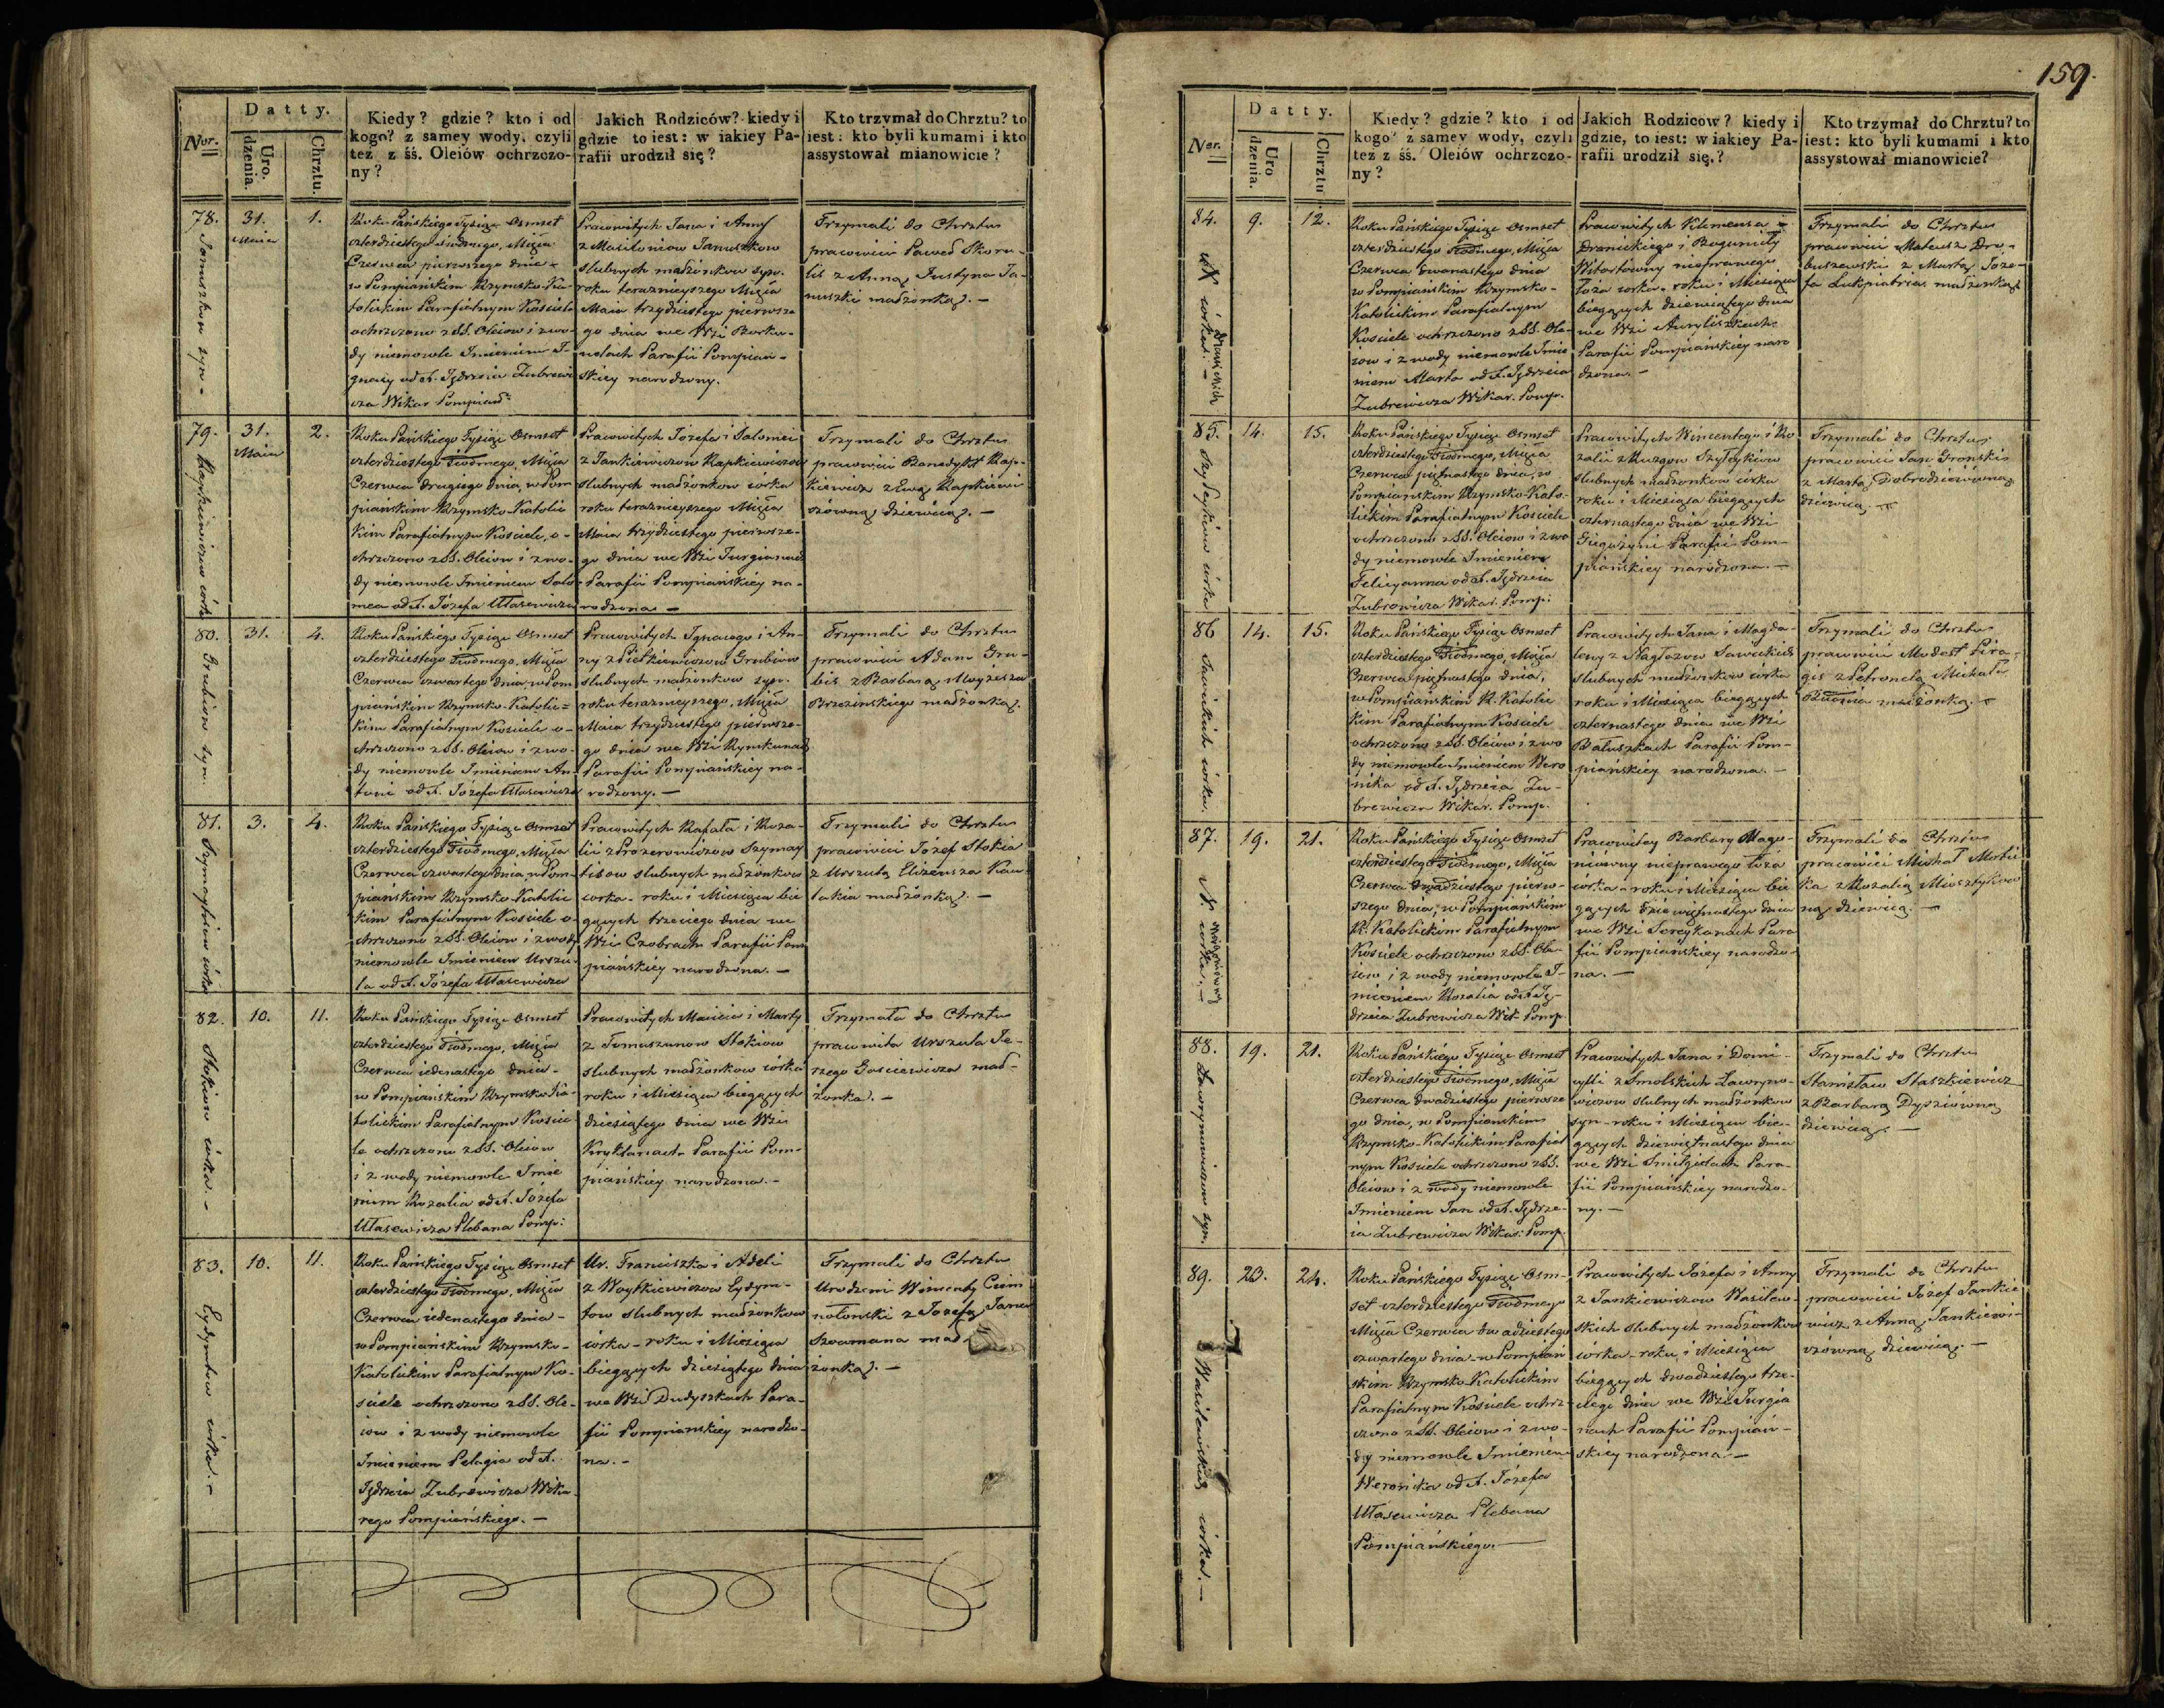 Datty.
Nor.
Uro.
dzenia.
Chrztu.
Kiedy? gdzie? kto i od
kogo? z samey wody, czyli
też z śś. Oleiów ochrzczo-
ny?
Jakich Rodziców? kiedy i
gdzie to iest: w iakiey Pa-
rafii urodził się?
Kto trzymał do Chrztu? to
iest: kto byli kumami i kto
assystował mianowicie?
78.
31.
Maia
1.
Januszków syn.
Roku Pańskiego Tysiąc Osmset
czterdziestego siódmego, Mięca
Czerwca pierwszego dnia
w Pompiańskim Rzymsko-Ka-
tolickim Parafialnym Kościele
ochrzczono z SS. Oleiow i z wo-
dy niemowle Imieniem I-
gnacy od X. Jędrzeia Zubrewi
cza Wikar. Pompiań:
Pracowitych Jana i Anny
z Masiloniow Januszkow
slubnych małżonkow syn.
roku teraznieyszego Mięca
Maia trzydziestego pierwsze
go dnia we Wsi
Parafii Pompiań-
skiey narodzony.
Trzymali do Chrztu
pracowici Paweł Skoru-
lis z Anną Justyna Ja-
nuszki małżonką. -
79.
31.
Maia
2.
Rapkiewiczow córka
Roku Pańskiego Tysiąc Osmset
czterdziestego siodmego, Mięca
Czerwca drugiego dnia, w Pom
piańskim Rzymsko-Katolic
kim Parafialnym Kościele, o-
chrzczono z SS. Oleiow i z wo-
dy niemowle Imieniem Salo
mea od X. Józefa Ułasewicza
Pracowitych Józefa i Salomei
z Jankiewiczow Rapkiewiczow
slubnych małżonkow corka
roku teraznieyszego Mięca
Maia trzydziestego pierwsze-
go dnia we Wsi Jurgianach
Parafii Pompiańskiey na-
rodzona. -
Trzymali do Chrztu
pracowici Benedykt Rap-
kiewicz z Ewą Rapkiewi
czówną dziewicą. -
80.
31.
4.
Grubiow syn.
Roku Pańskiego Tysiąc Osmset
czterdziestego siodmego, Mięca
Czerwca czwartego dnia, w Pom
piańskim Rzymsko-Katolic=
kim Parafialnym Kosciele o-
chrzczono z SS. Oleiow i z wo-
dy niemowle Imieniem An-
toni od X. Józefa Ułasewicza
Pracowitych Ignacego i An-
ny z Pietkiewiczow Grubiow
slubnych małżonkow syn.
roku teraznieyszego, Mięca
Maia trzydziestego pierwsze-
go dnia we Wsi Rynkunach
Parafii Pompiańskiey na-
rodzony. -
Trzymali do Chrztu
pracowici Adam Gru-
bis z Barbarą Moyżesza
Brzezinskiego małżonką.
81.
3.
4.
Szymaytisow córka
Roku Pańskiego Tysiąc Osmset
czterdziestego siodmego, Mięca
Czerwca czwartego dnia, w Pom-
piańskim Rzymsko-Katolic
kim Parafialnym Kosciele o-
chrzczono z SS. Oleiow i z wody
niemowle Imieniem Urszu-
la od X. Józefa Ułasewicza
Pracowitych Rafała i Roza-
lii z Prozerowiczow Szymay
tisow slubnych małżonkow
corka. roku i Miesiąca bie
gących trzeciego dnia we
Wsi Czobrach Parafii Pom
piańskiey narodzona. -
Trzymali do Chrztu
pracowici Józef Stokia
z Urszulą Elizeusza Kau
lakia małżonką. -
82.
10.
11.
Stokiow córka. -
Roku Pańskiego Tysiąc Osmset
czterdziestego siodmego, Mięca
Czerwca iedenastego dnia-
w Pompiańskim Rzymsko-Ka-
tolickim Parafialnym Koscie
le ochrzczono z SS. Oleiow
i z wody niemowle Imie
niem Rozalia od X. Józefa
Ułasewicza Plebana Pomp:
Pracowitych Macieia i Marty
z Tomaszunow Stokiow
slubnych małżonkow córka
roku i Miesiąca biegących
dziesiątego dnia we Wsi
Krykłanach Parafii Pom-
piańskiey narodzona. -
Trzymała do Chrztu
pracowita Urszula Je-
rzego Gosciewicza mał-
żonka. -
83.
10.
11.
Eydymtow córka. -
Roku Pańskiego Tysiąc Osmset
czterdziestego siodmego, Mięca
Czerwca iedenastego dnia-
w Pompiańskim Rzymsko-
Katolickim Parafialnym Ko-
sciele ochrzczono z SS. Ole-
iow i z wody niemowle
Imieniem Pelagia od X.
Jędrzeia Zubrewicza Wika-
rego Pompiańskiego. -
Ur. Franciszka i Adeli
z Woytkiewiczow Eydym-
tow slubnych małżonkow
córka - roku i Miesiąca
biegących dziesiątego dnia
we Wsi Dudyszkach Para-
fii Pompianskiey narodzo-
na. -
Trzymali do Chrztu
Urodzeni Wincenty Cim
nołonski z Józefą Jana
Szaumana mał
żonką. -
159.
Datty.
Ner.
Uro
dzenia.
Chrztu
Kiedy? gdzie? kto i od
kogo? z samey wody, czyli
też z śś. Oleiów ochrzczo-
ny?
Jakich Rodziców? kiedy i
gdzie, to iest: w iakiey Pa-
rafii urodził się.?
Kto trzymał do Chrztu? to
iest: kto byli kumami i kto
assystował mianowicie?
84.
9.
12.
N córka. -
Dranickich
Roku Pańskiego Tysiąc Osmset
czterdziestego siodmego, Mięca
Czerwca dwunastego dnia
w Pompiańskim Rzymsko-
Katolickim Parafialnym
Kosciele ochrzczono z SS. Ole-
iow i z wody niemowle Imie
niem Marta od X. Jędrzeia
Zubrewicza Wikar. Pomp.
Pracowitych Klemensa i
Dranickiego i Bogumiły
Witortówny nieprawego
łoża corka. roku i Miesiąca
biegących dziewiątego dnia
we Wsi Auryliszkach
Parafii Pompiańskiey naro
dzona. -
Trzymali do Chrztu
pracowici Mateusz Dro-
buszewski z Martą Józe-
fa Łukpiatria małżonką
85.
14.
15.
Szyłeyków córka
Roku Pańskiego Tysiąc Osmset
czterdziestego siodmego, Mięca
Czerwca piętnastego dnia, w
Pompiańskim Rzymsko-Kato-
lickim Parafialnym Kosciele
ochrzczono z SS. Oleiow i z wo
dy niemowle Imieniem
Felicyanna od X. Jędrzeia
Zubrowicza Wikar. Pomp:
Pracowitych Wincentego i Ro
zalii z Ruzgow Szyłeyków
slubnych małżonkow córka
roku i Miesiąca biegących
czternastego dnia we Wsi
Giegużyni Parafii Pom-
piańskiey narodzona. -
Trzymali do Chrztu
pracowici Jan Gronskis
z Martą Dobrodzieiówną
dziewicą. -
86
14.
15.
Sawickich córka.
Roku Pańskiego Tysiąc Osmset
czterdziestego siodmego, Mięca
Czerwca piętnastego dnia,
w Pompiańskim R. Katolic
kim Parafialnym Kosciele
ochrzczono z SS. Oleiow i z wo
dy niemowle Imieniem Wero
nika od X. Jędrzeia Zu-
brewicza Wikar. Pomp.
Pracowitych Jana i Magda-
leny z Nagłozow Sawickich
slubnych małżonkow córka
roku i Miesiąca biegących
czternastego dnia we Wsi
Bałuszkach Parafii Pom-
piańskiey narodzona. -
Trzymali do Chrztu
pracowici Modest Pira-
gis z Petronelą Michała
małżonką. -
87.
19.
21.
N córka. -
Roku Pańskiego Tysiąc Osmset
czterdziestego siodmego, Mięca
Czerwca dwudziestego pierw-
szego dnia, w Pompiańskim
R. Katolickim Parafialnym
Kosciele ochrzczono z SS. Ole-
iow i z wody niemowle I-
mieniem Rozalia od X. Ję-
drzeia Zubrewicza Wik. Pomp.
Pracowitey Barbary Mago-
niówny nieprawego łoża
córka - roku i Miesiąca bie
gących dziewiętnastego dnia
we Wsi Sereykanach Para
fii Pompiańskiey narodzo-
na. -
Trzymali do Chrztu
pracowici Michał Matu
ka z Rozalią Miosztyków
ną dziewicą. -
88.
19.
21.
Ławrynowiczow syn.
Roku Pańskiego Tysiąc Osmset
czterdziestego siodmego, Mięca
Czerwca dwudziestego pierwsze
go dnia, w Pompianskim
Rzymsko-Katolickim Parafial
nym Kosciele ochrzczono z SS.
Oleiow i z wody niemowle
Imieniem Jan od X. Jędrze-
ia Zubrewicza Wikar: Pomp.
Pracowitych Jana i Domi-
cylli z Smolskich Ławryno-
wiczow slubnych małżonkow
syn - roku i Miesiąca bie-
gących dziewiętnastego dnia
we Wsi Smilgielach Para-
fii Pompiańskiey narodzo-
ny. -
Trzymali do Chrztu
Stanisław Staszkiewicz
z Barbarą Dysziówną
dziewicą. -
89.
23.
24.
Wasilewskich córka. -
Roku Pańskiego Tysiąc Osm-
set czterdziestego siodmego
Mięca Czerwca dwadziestego
czwartego dnia - w Pompiań
skim Rzymsko-Katolickim
Parafialnym Kosciele ochrz-
czono z SS. Oleiow i z wo-
dy niemowle Imieniem
Weronika od X. Józefa
Ułasewicza Plebana
Pompiańskiego. -
Pracowitych Józefa i Anny
z Jankiewiczow Wasilew-
skich slubnych małżonkow
corka - roku i Miesiąca
biegących dwadziestego trze-
ciego dnia we Wsi Jurgia
nach Parafii Pompiań-
skiey narodzona. -
Trzymali do Chrztu
pracowici Józef Jankie
wicz z Anną Jankiewi-
czówną dziewicą. -